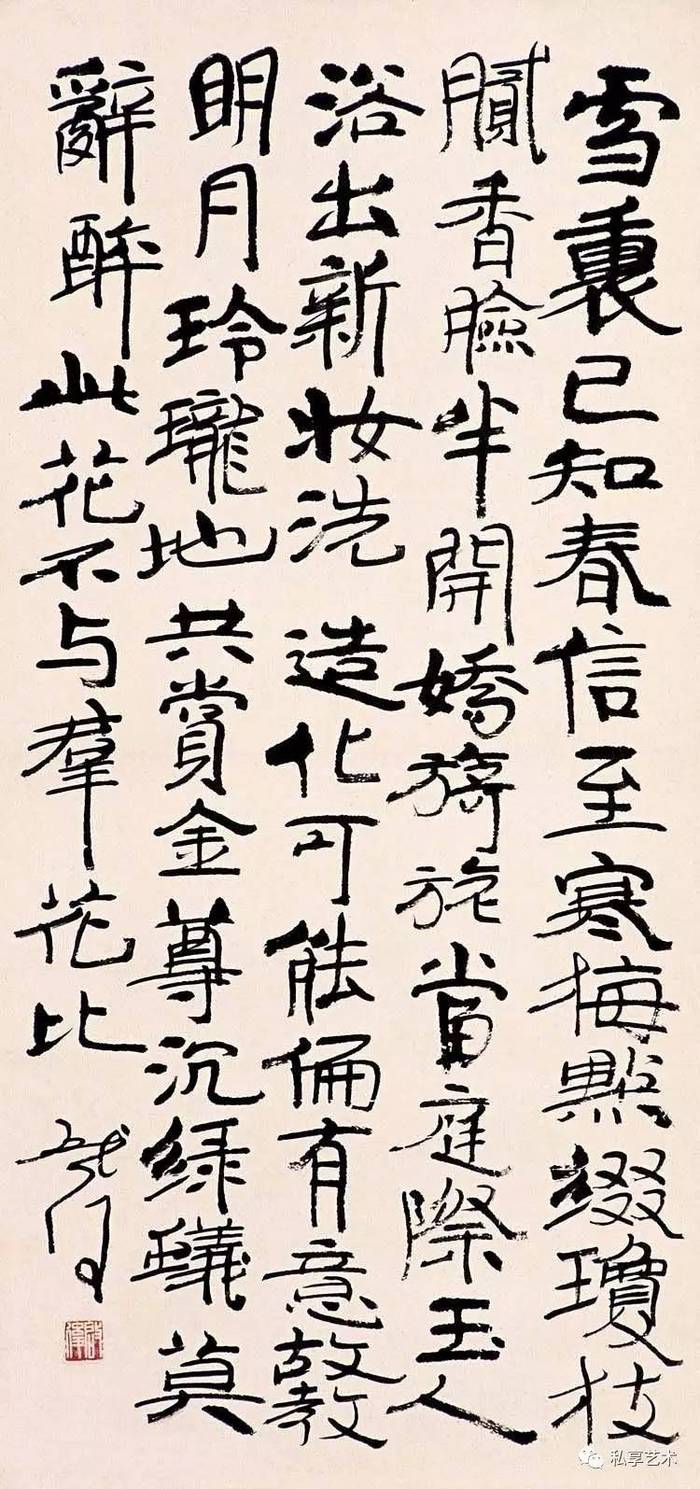 雪裏已知春信至寒梅點綴瓊枝
膩香臉半開嬌旖旎當庭際玉人
浴出新妆洗造化可能偏有意故教
明月玲瓏地共賞金尊沉綠蟻莫
辭醉此花不与羣花比
私享艺术